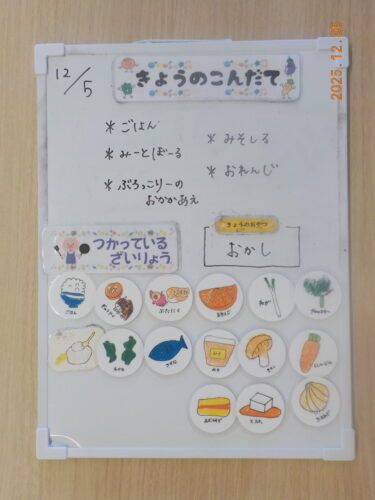 2025.12.
12/5
きょうのこんだて
* ごはん
* みそしる
* みーとぼーる
* おれんじ
* ぶろっこりーの
おかかあえ
きょうのおやつ
おかし
つかっている
ざいりょう
ごはん
ぶたにく
ねぎ
ブロッコリー
わかめ
さかな
みそ
きのこ
にんじん
とうふ